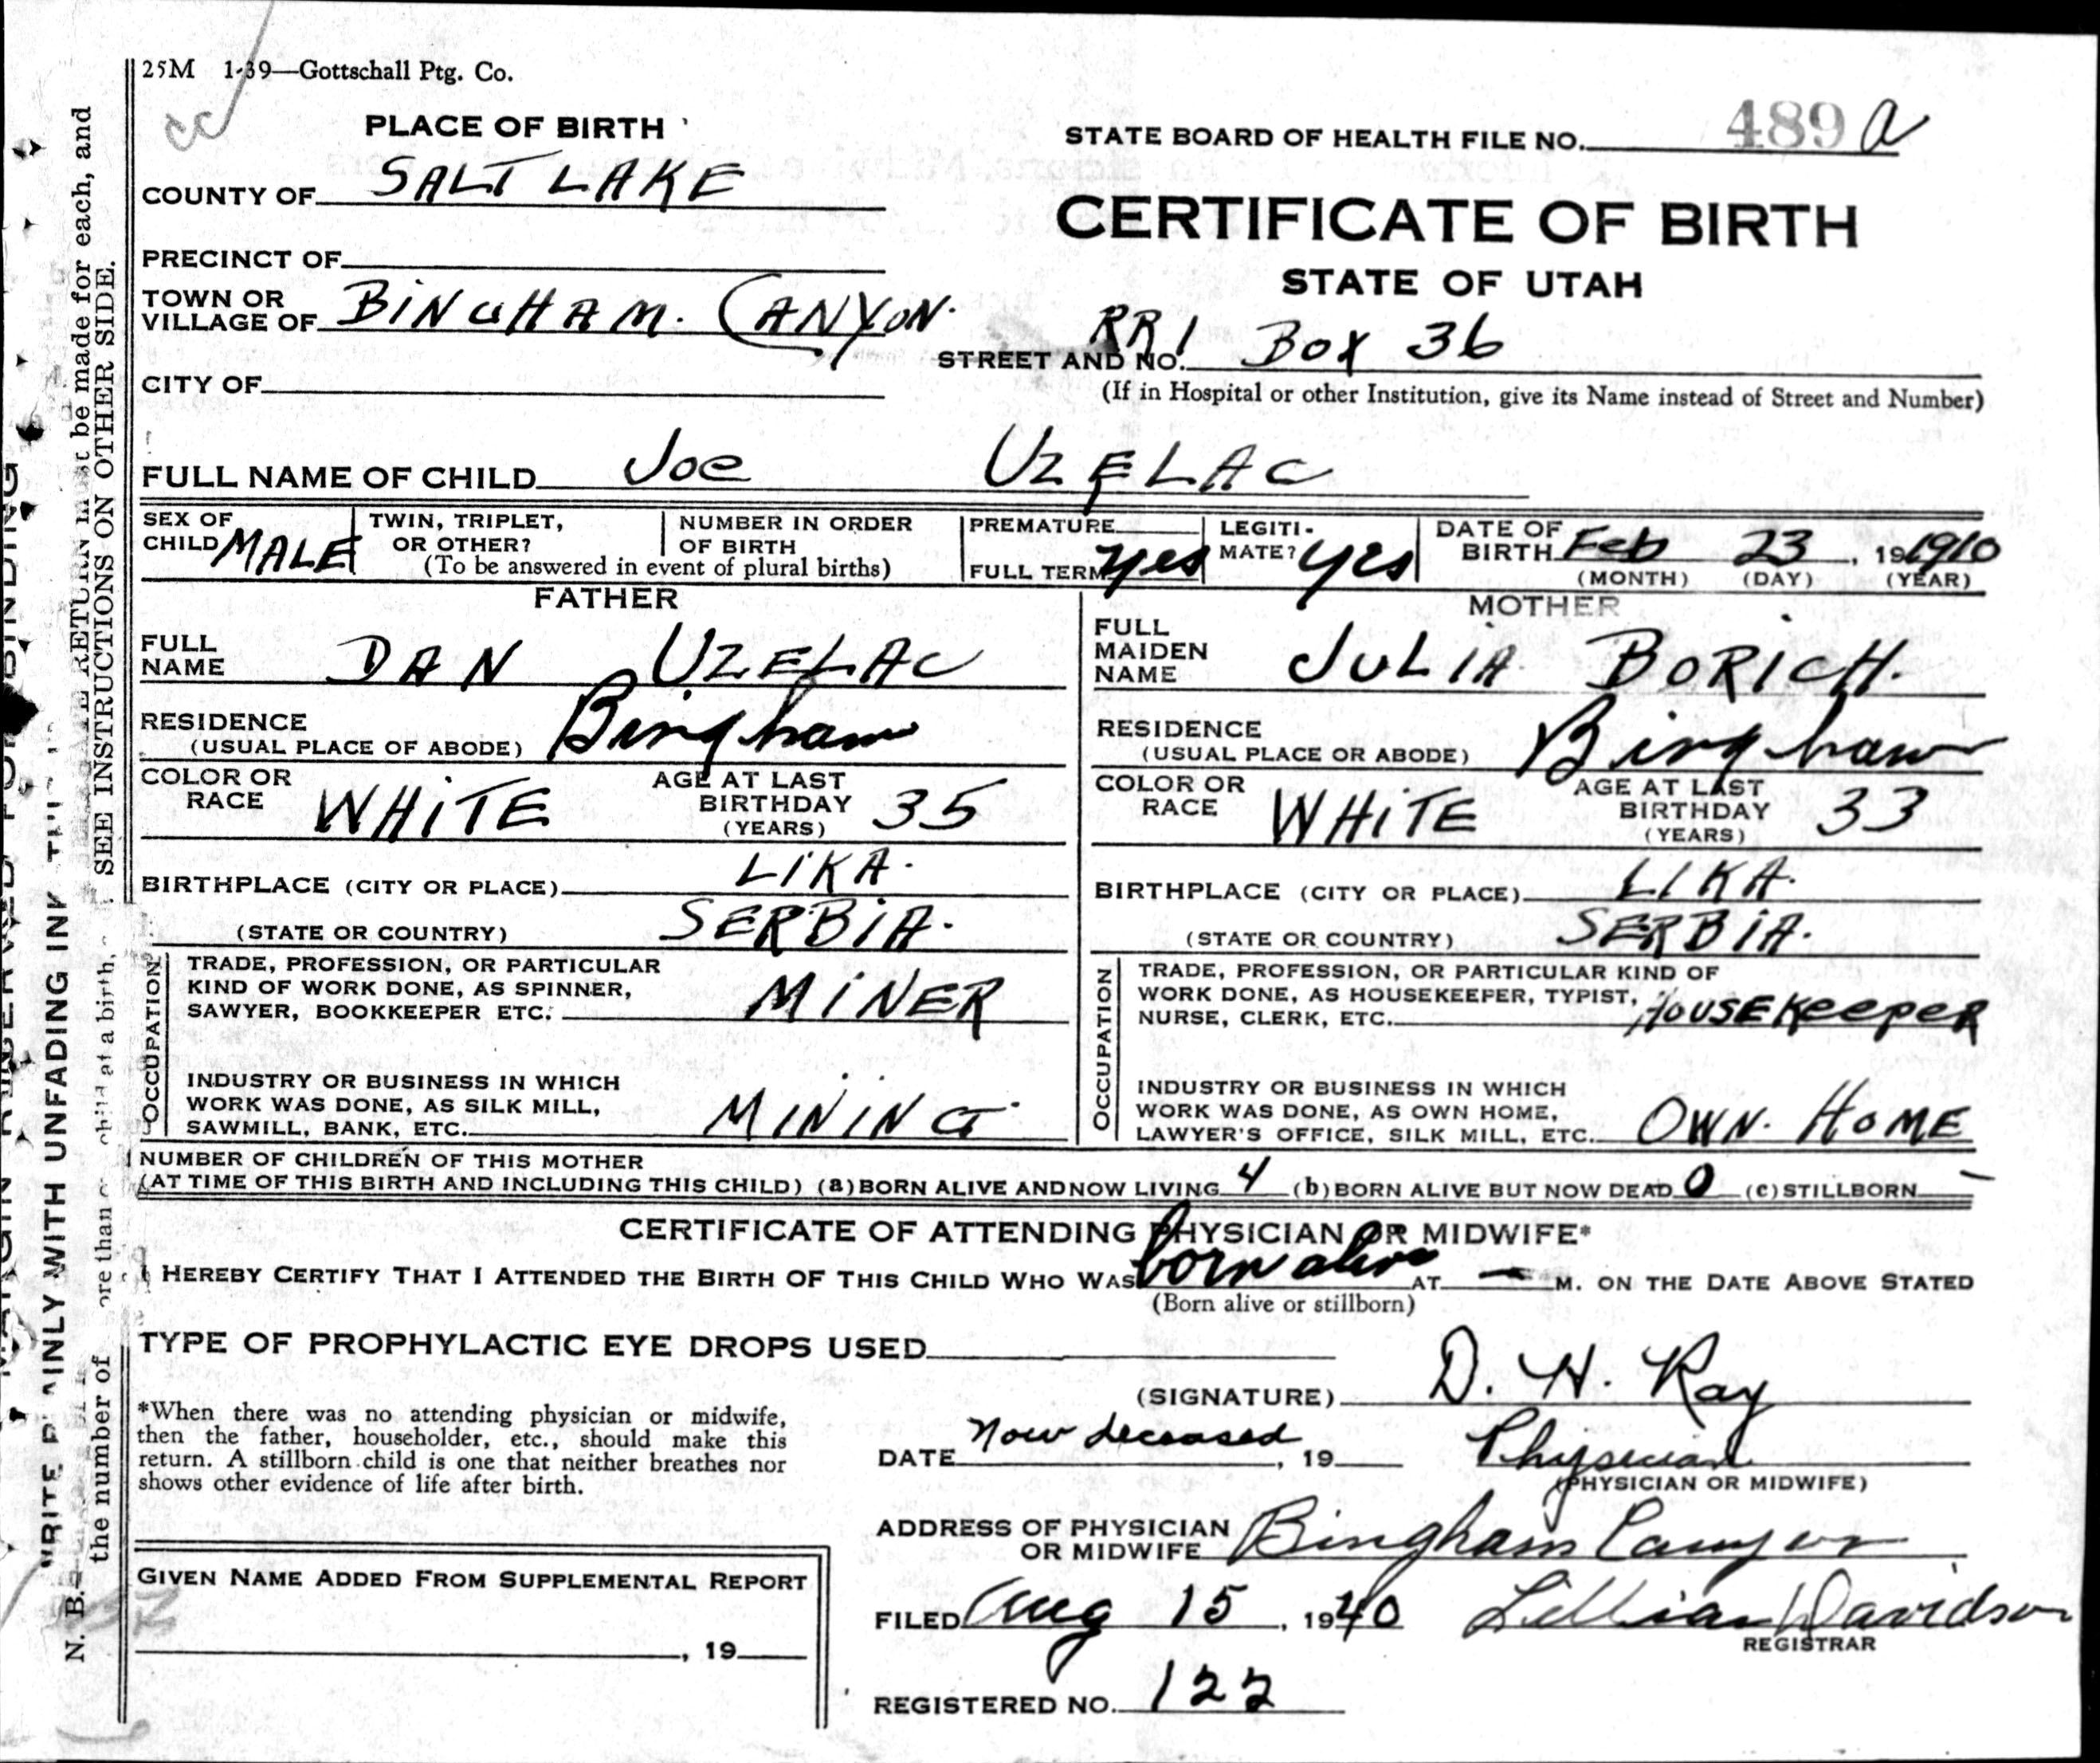 25M 1-39—Gottschall Ptg. Co.
cc
PLACE OF BIRTH
STATE BOARD OF HEALTH FILE NO. 489 a
COUNTY OF SALT LAKE
CERTIFICATE OF BIRTH
STATE OF UTAH
PRECINCT OF
TOWN OR VILLAGE OF BINGHAM. CANYON.
RR 1
STREET AND NO. Box 36
CITY OF
(If in Hospital or other Institution, give its Name instead of Street and Number)
FULL NAME OF CHILD Joe UZELAC
SEX OF CHILD MALE
TWIN, TRIPLET, OR OTHER?
NUMBER IN ORDER OF BIRTH
(To be answered in event of plural births)
PREMATURE
FULL TERM yes
LEGITI-MATE? yes
DATE OF BIRTH Feb 23, 19 1910
(MONTH) (DAY) (YEAR)
FATHER
FULL NAME DAN UZELAC
RESIDENCE (USUAL PLACE OF ABODE) Bingham
COLOR OR RACE WHITE
AGE AT LAST BIRTHDAY (YEARS) 35
BIRTHPLACE (CITY OR PLACE) LIKA.
(STATE OR COUNTRY) SERBIA.
OCCUPATION
TRADE, PROFESSION, OR PARTICULAR
KIND OF WORK DONE, AS SPINNER,
SAWYER, BOOKKEEPER ETC. MINER
INDUSTRY OR BUSINESS IN WHICH
WORK WAS DONE, AS SILK MILL,
SAWMILL, BANK, ETC. MINING
MOTHER
FULL MAIDEN NAME JULIA BORICH.
RESIDENCE (USUAL PLACE OR ABODE) Bingham
COLOR OR RACE WHITE
AGE AT LAST BIRTHDAY (YEARS) 33
BIRTHPLACE (CITY OR PLACE) LIKA.
(STATE OR COUNTRY) SERBIA.
OCCUPATION
TRADE, PROFESSION, OR PARTICULAR KIND OF
WORK DONE, AS HOUSEKEEPER, TYPIST,
NURSE, CLERK, ETC. HOUSEKeepeR
INDUSTRY OR BUSINESS IN WHICH
WORK WAS DONE, AS OWN HOME,
LAWYER'S OFFICE, SILK MILL, ETC. OWN. HOME
NUMBER OF CHILDREN OF THIS MOTHER
(AT TIME OF THIS BIRTH AND INCLUDING THIS CHILD) (a) BORN ALIVE AND NOW LIVING 4 (b) BORN ALIVE BUT NOW DEAD 0 (c) STILLBORN –
CERTIFICATE OF ATTENDING PHYSICIAN OR MIDWIFE*
I HEREBY CERTIFY THAT I ATTENDED THE BIRTH OF THIS CHILD WHO WAS born alive AT — M. ON THE DATE ABOVE STATED
(Born alive or stillborn)
TYPE OF PROPHYLACTIC EYE DROPS USED
(SIGNATURE) D. H. Ray
*When there was no attending physician or midwife,
then the father, householder, etc., should make this
return. A stillborn child is one that neither breathes nor
shows other evidence of life after birth.
DATE now deceased, 19 Physician
(PHYSICIAN OR MIDWIFE)
ADDRESS OF PHYSICIAN OR MIDWIFE Bingham Canyon
GIVEN NAME ADDED FROM SUPPLEMENTAL REPORT
, 19
FILED Aug 15, 1940 Lillian Davidson
REGISTRAR
REGISTERED NO. 122
SEE INSTRUCTIONS ON OTHER SIDE.
be made for each, and
WITH UNFADING INK
N. B.
the number of
child at a birth,